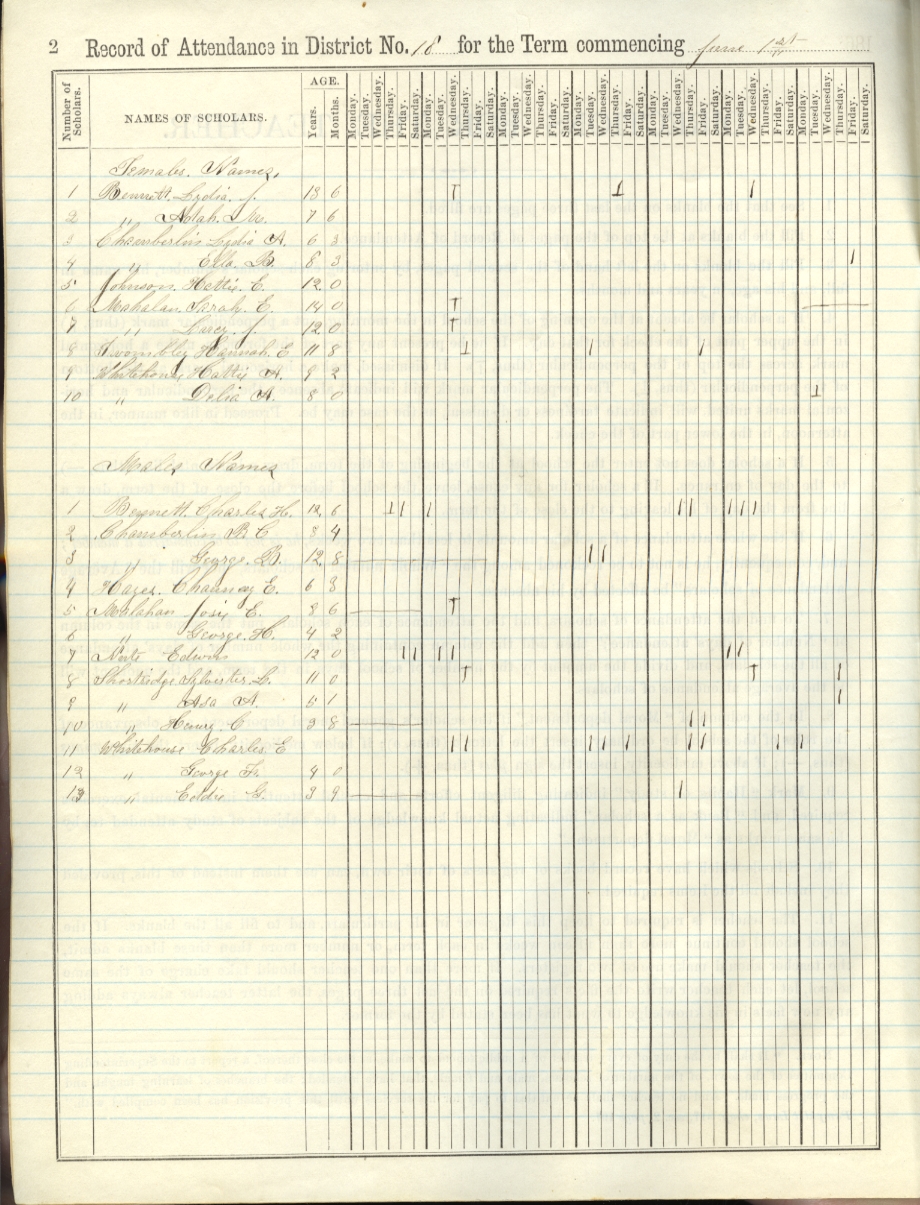 2 Record of Attendance in District No. 18 for the Term commencing June 1st
Number of Scholars. NAMES OF SCHOLARS. AGE. Years. Months. Monday. Tuesday. Wednesday. Thursday. Friday. Saturday. Monday. Tuesday. Wednesday. Thursday. Friday. Saturday. Monday. Tuesday. Wednesday. Thursday. Friday. Saturday. Monday. Tuesday. Wednesday. Thursday. Friday. Saturday. Monday. Tuesday. Wednesday. Thursday. Friday. Saturday. Monday. Tuesday. Wednesday. Thursday. Friday. Saturday. Monday. Tuesday. Wednesday. Thursday. Friday. Saturday.
Females. Names.
1 Bennett. Lydia. J. 13 6
2 " M. 7 6
3 Chamberlin Lydia A. 6 3
4 " Ella. B. 8 3
5 Johnson. Hattie. E. 12 0
6 Mahalan. Sarah. E. 14 0
7 " J. 12 0
8 Twombley Hannah. E 11 8
9 Whitehouse Hattie A. 9 2
10 " Delia A. 8 0
Males Names
1 Bennett. Charles H. 12 6
2 Chamberlin B. C 8 4
3 " George. B. 12 8
4 Hayes. Chauncy E. 6 3
5 Mahalan Josie E. 8 6
6 " George. H. 4 2
7 Nute Edwin 12 0
8 Shortridge Sylvester L. 11 0
9 " Asa A. 5 1
10 " Henry. C 3 8
11 Whitehouse Charles E
12 " George F. 4 0
13 " Eddie G. 3 9